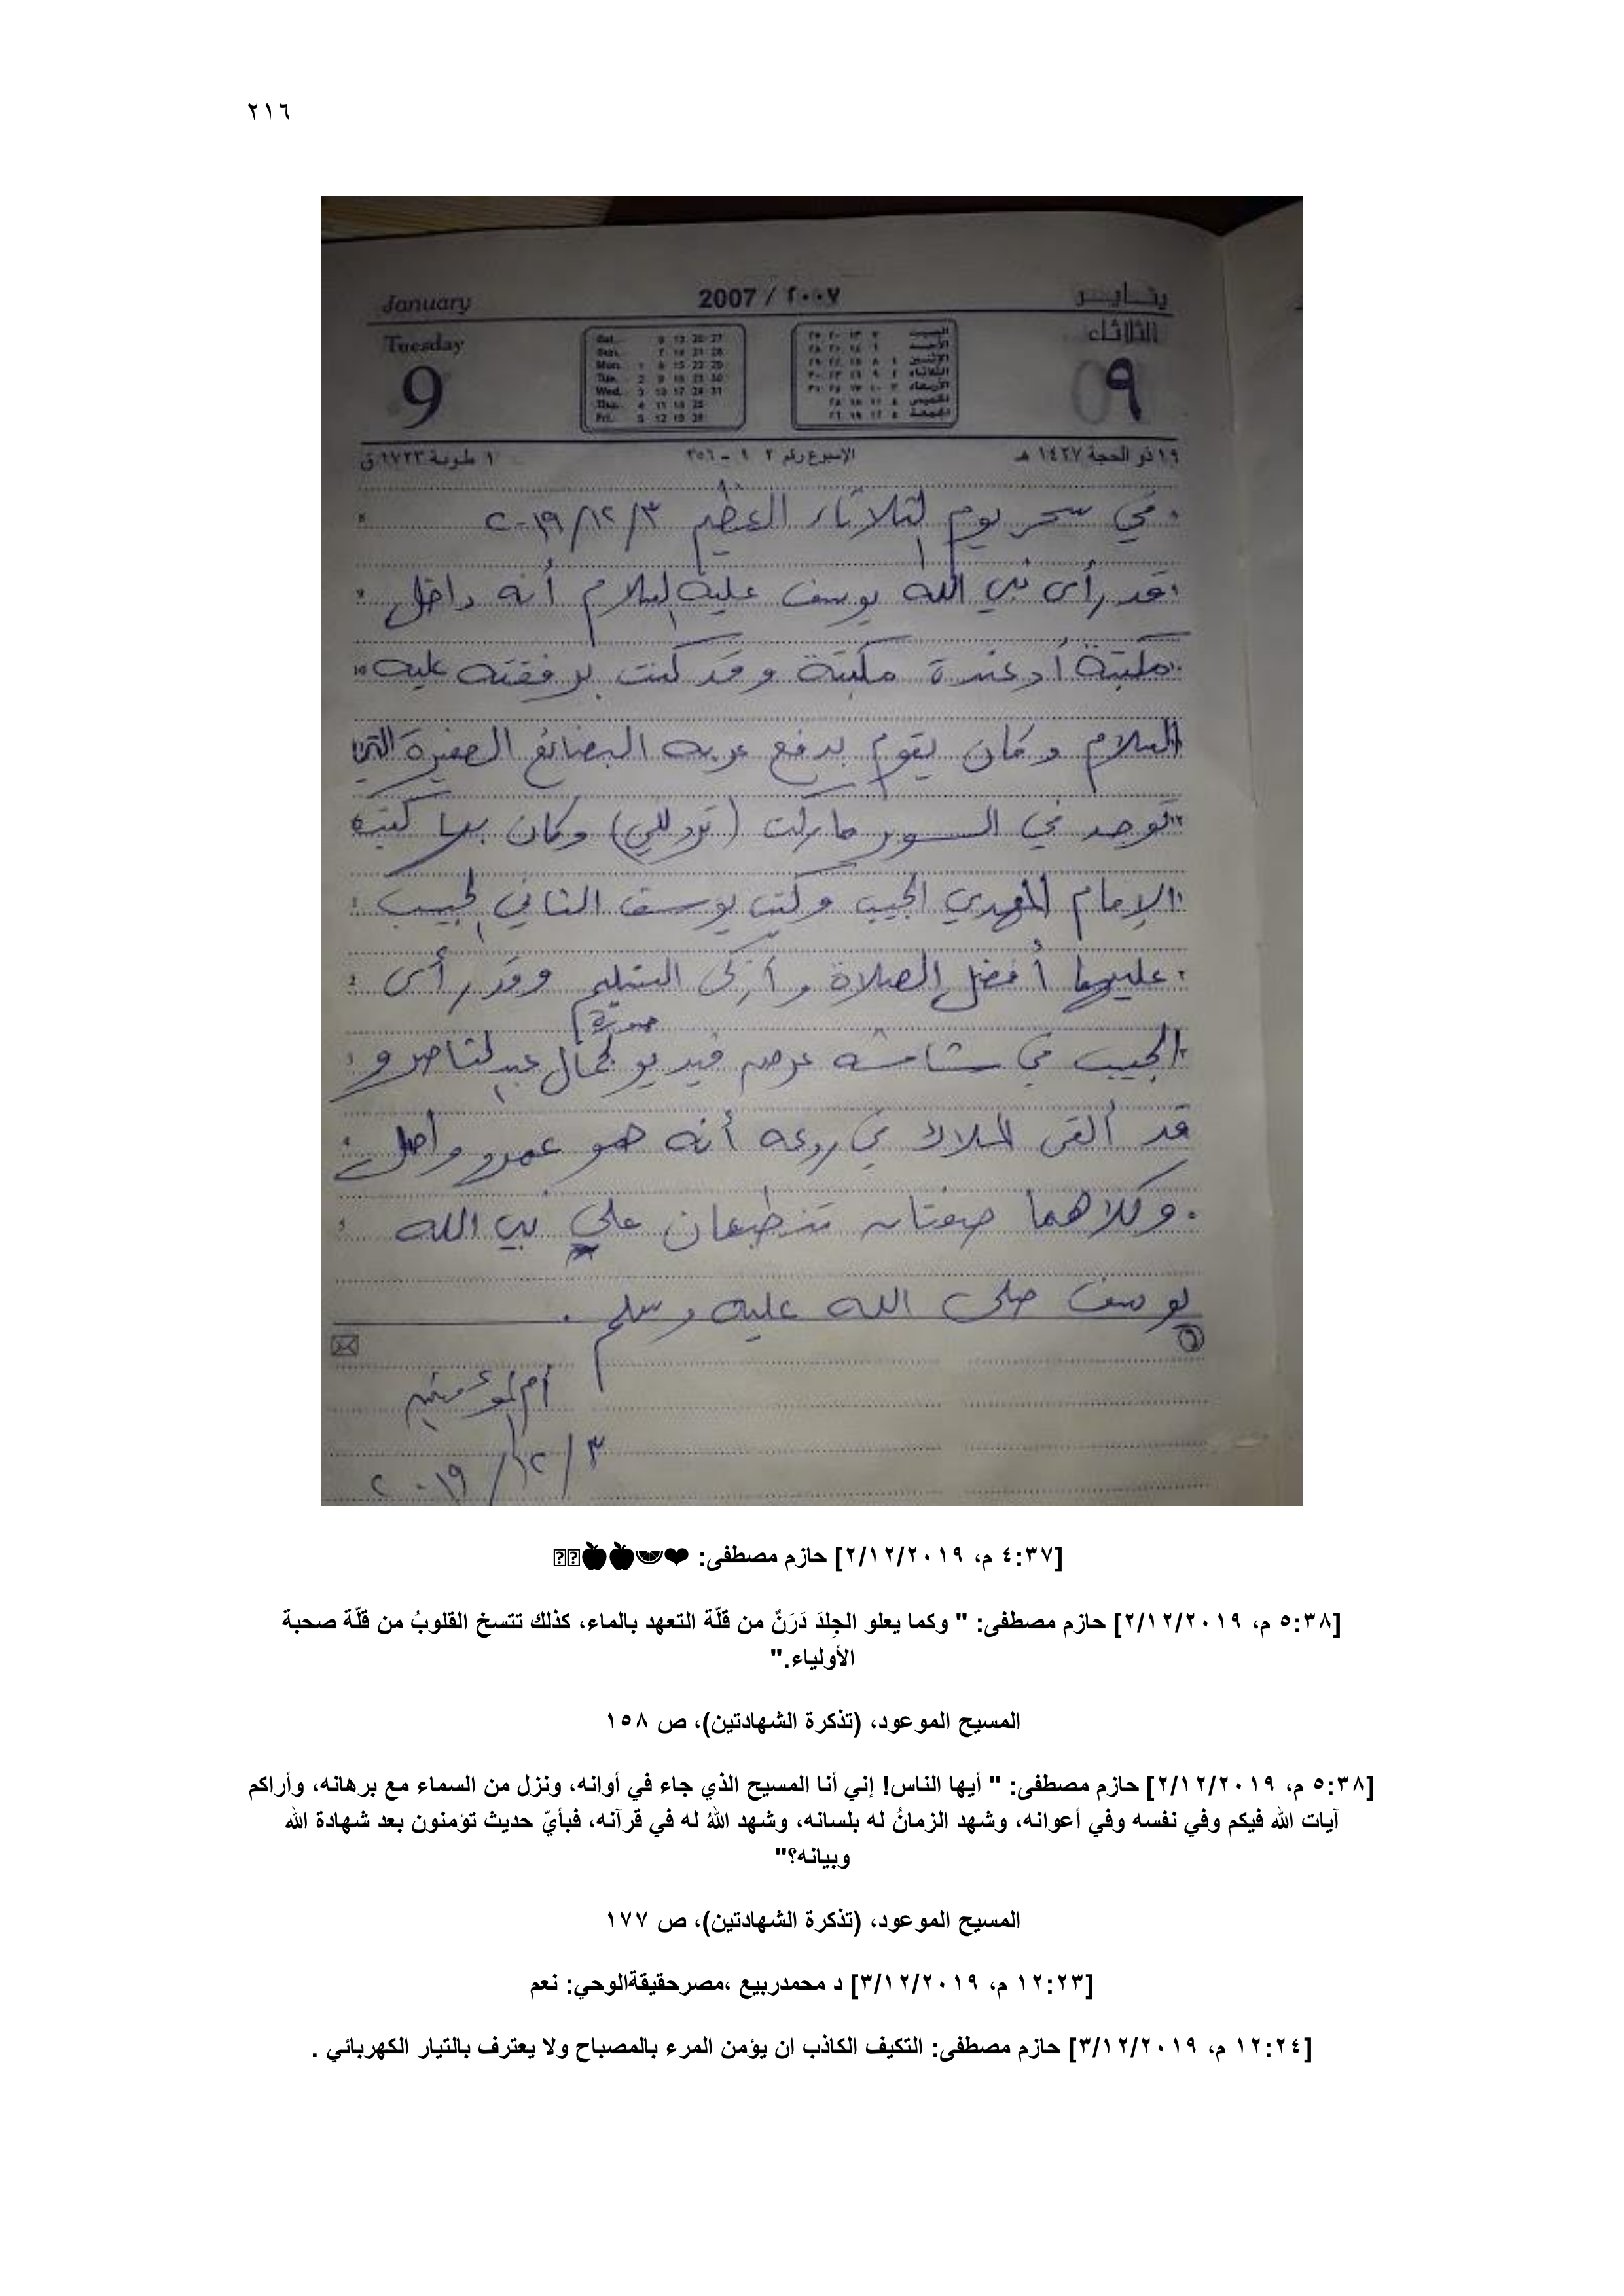 ٢١٦
January
2007 / ٢٠٠٧
ينايـــر
Tuesday
الثلاثاء
9
٩
١ طوبة ١٧٢٣ق
الإسبوع رقم ٢
٩ - ٣٥٦
١٩ ذو الحجة ١٤٢٧ هـ
في سحر يوم الثلاثاء العظيم ٣/١٢/٢٠١٩
قد رأى نبي الله يوسف عليه السلام أنه داخل
مكتبة أو عندة مكتبة وقد كنت برفقته عليه
السلام وكان يقوم بدفع عربه البضائع الصغيرة التي
توجد في السوبر ماركت (ترولي) وكان بها كتب
الإمام المهدي الحبيب وكتب يوسف الثاني الحبيب
عليهما أفضل الصلاة وأزكى التسليم وقد رأى
الحبيب في شاشه عرض فيديو صورة لجمال عبد الناصر و
قد ألقى الملاك في روعه أنه هو عمرو واصل
وكلاهما صفتان تنطبعان علي نبي الله
يوسف صلى الله عليه وسلم .
أم المؤمنين
٣/١٢/٢٠١٩
[٤:٣٧ م، ٢/١٢/٢٠١٩] حازم مصطفى: ❤🍉🍎🍎
[٥:٣٨ م، ٢/١٢/٢٠١٩] حازم مصطفى: " وكما يعلو الجِلدَ دَرَنٌ من قلّة التعهد بالماء، كذلك تتسخ القلوبُ من قلّة صحبة
الأولياء."
المسيح الموعود، (تذكرة الشهادتين)، ص ١٥٨
[٥:٣٨ م، ٢/١٢/٢٠١٩] حازم مصطفى: " أيها الناس! إني أنا المسيح الذي جاء في أوانه، ونزل من السماء مع برهانه، وأراكم
آيات الله فيكم وفي نفسه وفي أعوانه، وشهد الزمانُ له بلسانه، وشهد اللهُ له في قرآنه، فبأيّ حديث تؤمنون بعد شهادة الله
وبيانه؟"
المسيح الموعود، (تذكرة الشهادتين)، ص ١٧٧
[١٢:٢٣ م، ٣/١٢/٢٠١٩] د محمدربيع ،مصرحقيقةالوحي: نعم
[١٢:٢٤ م، ٣/١٢/٢٠١٩] حازم مصطفى: التكيف الكاذب ان يؤمن المرء بالمصباح ولا يعترف بالتيار الكهربائي .